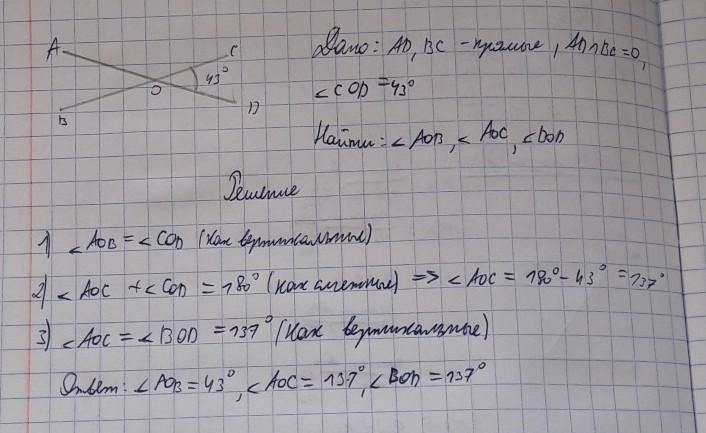 A
C
43°
O
B
D
Дано: AD, BC - прямые, AD∩BC=O,
∠COD=43°
Найти: ∠AOB, ∠AOC, ∠BOD
Решение
1) ∠AOB=∠COD (как вертикальные)
2) ∠AOC+∠COD=180° (как смежные) => ∠AOC=180°-43°=137°
3) ∠AOC=∠BOD=137° (как вертикальные)
Ответ: ∠AOB=43°, ∠AOC=137°, ∠BOD=137°